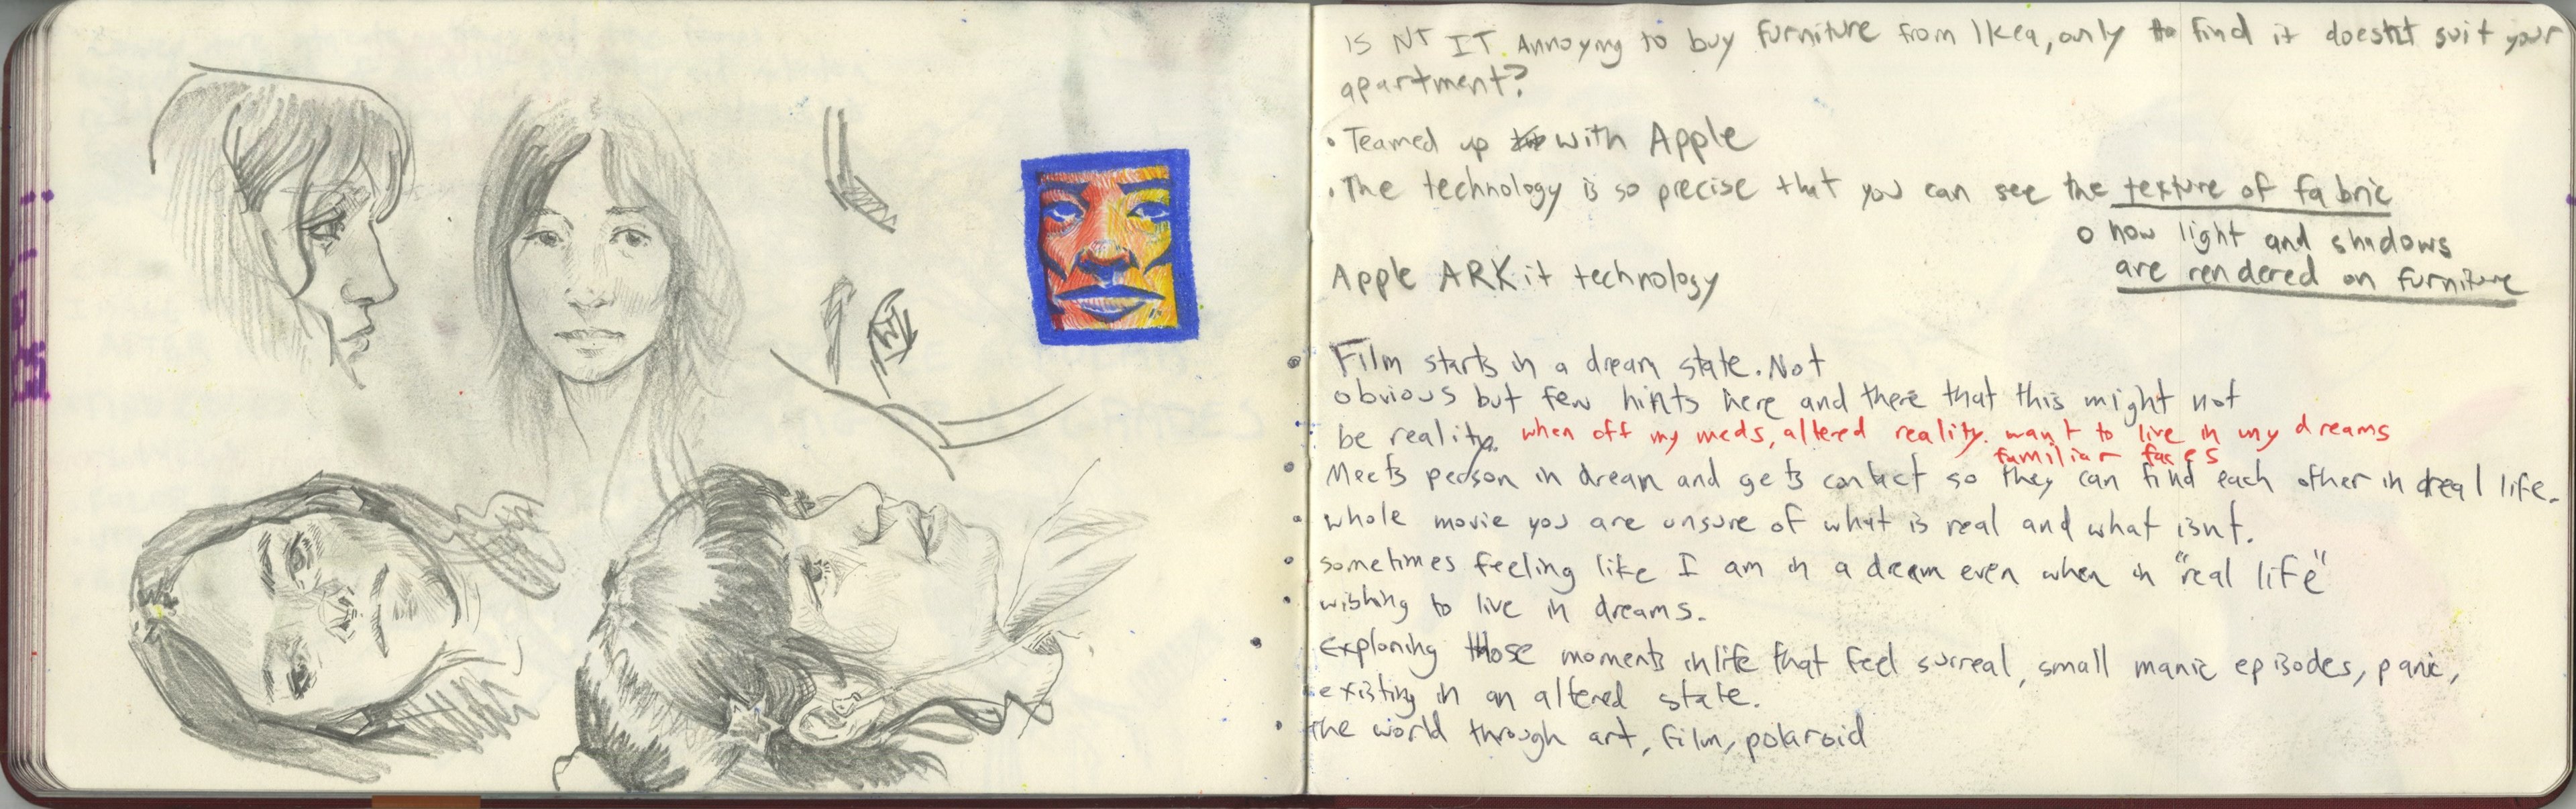 IS NT IT Annoying to buy furniture from Ikea, only to find it doesnt suit your
apartment?
• Teamed up with Apple
• The technology is so precise that you can see the texture of fabric
o how light and shadows
are rendered on furniture
Apple ARKit technology
• Film starts in a dream state. Not
obvious but few hints here and there that this might not
be reality. when off my meds, altered reality. want to live in my dreams
familiar faces
• Meets person in dream and gets contact so they can find each other in real life.
• whole movie you are unsure of what is real and what isnt.
• sometimes feeling like I am in a dream even when in "real life"
• wishing to live in dreams.
• Exploring those moments in life that feel surreal, small manic episodes, panic,
existing in an altered state.
• the world through art, film, polaroid